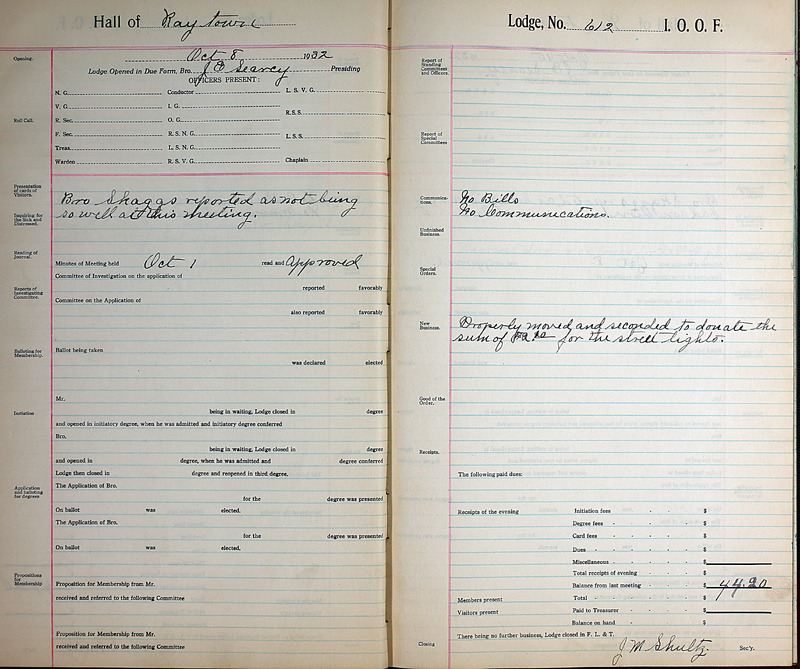 Hall of Raytown
Oct 8 1932
Opening.
Lodge Opened in Due Form, Bro. J D Searcy Presiding
OFFICERS PRESENT:
N. G. Conductor L. S. V. G.
V. G. I. G.
R.S.S.
Roll Call.
R. Sec. O. G.
F. Sec. R. S. N. G.
L. S. S.
Treas. L. S. N. G.
Warden R. S. V. G. Chaplain
Presentation of cards of Visitors.
Bro Shaggs reported as not being
so well at this meeting.
Inquiring for the Sick and Distressed.
Reading of Journal.
Minutes of Meeting held Oct 1 read and approved
Committee of Investigation on the application of
Reports of Investigating Committee.
reported favorably
Committee on the Application of
also reported favorably
Balloting for Membership.
Ballot being taken
was declared elected
Mr.
Initiation
being in waiting, Lodge closed in degree
and opened in initiatory degree, when he was admitted and initiatory degree conferred
Bro.
being in waiting, Lodge closed in degree
and opened in degree, when he was admitted and degree conferred
Lodge then closed in degree and reopened in third degree.
Application and balloting for degrees
The Application of Bro.
for the degree was presented
On ballot was elected.
The Application of Bro.
for the degree was presented
On ballot was elected,
Propositions for Membership
Proposition for Membership from Mr.
received and referred to the following Committee
Proposition for Membership from Mr.
received and referred to the following Committee
Lodge, No. 612 I. O. O. F.
Report of Standing Committees and Officers.
Report of Special Committees
Communications.
No Bills
No Communications.
Unfinished Business.
Special Orders.
New Business.
Properly moved and seconded to donate the
sum of for the street lights.
Good of the Order.
Receipts.
The following paid dues:
Receipts of the evening Initiation fees $
Degree fees $
Card fees $
Dues $
Miscellaneous $
Total receipts of evening $
Balance from last meeting $ 44.20
Members present Total $
Visitors present Paid to Treasurer $
Balance on hand $
There being no further business, Lodge closed in F. L. & T.
Closing
J M Shultz Sec'y.